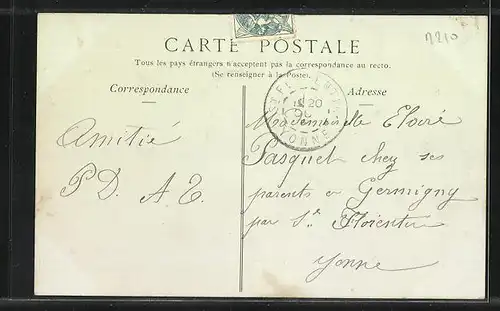 A210
CARTE POSTALE
Tous les pays étrangers n'acceptent pas la correspondance au recto.
(Se renseigner à la Poste).
Correspondance
Adresse
YONNE
Mademoiselle
Amitié
Pasquet chez ses
P.D. A.T.
parents en Germigny
par St Florentin
Yonne